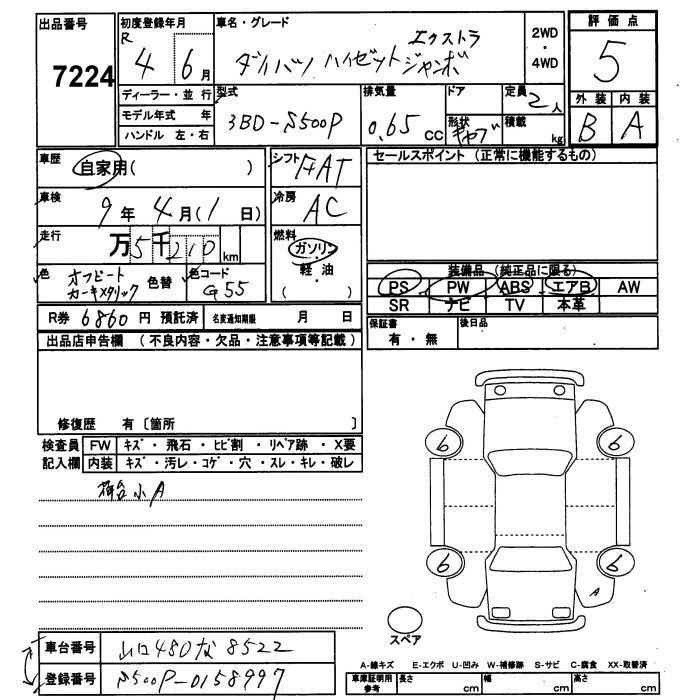 出品番号
7224
初度登録年月
R 4 6月
ディーラー・並 行
モデル年式 年
ハンドル 左・右
車名・グレード
エクストラ
ダイハツ ハイゼットジャンボ
2WD
・
4WD
評 価 点
5
外 装 内 装
B A
型式
3BD-S500P
排気量
0.65 cc
ドア
形状
キャブ
定員
2人
積載
kg
車歴
自家用( )
車検
9年 4月(1日)
走行
万5千210km
色
オフビート
カーキメタリック
色替
色コード
G55
シフト
FAT
冷房
AC
燃料
ガソリン
・
軽・油
( )
セールスポイント (正常に機能するもの)
装備品 (純正品に限る)
PS PW ABS エアB AW
SR ナビ TV 本革
保証書
有・無
後日品
R券 6860円 預託済 名変通知期限 月 日
出品店申告欄 (不良内容・欠品・注意事項等記載)
修復歴 有〔箇所 〕
検査員 FW キズ・飛石・ヒビ割・リペア跡・X要
記入欄 内装 キズ・汚レ・コゲ・穴・スレ・キレ・破レ
荷台小A
6
6
6
6
A
スペア
車台番号 山口480な8522
登録番号 S500P-0158997
A-線キズ E-エクボ U-凹み W-補修跡 S-サビ C-腐食 XX-取替済
車庫証明用
参考
長さ cm
幅 cm
高さ cm